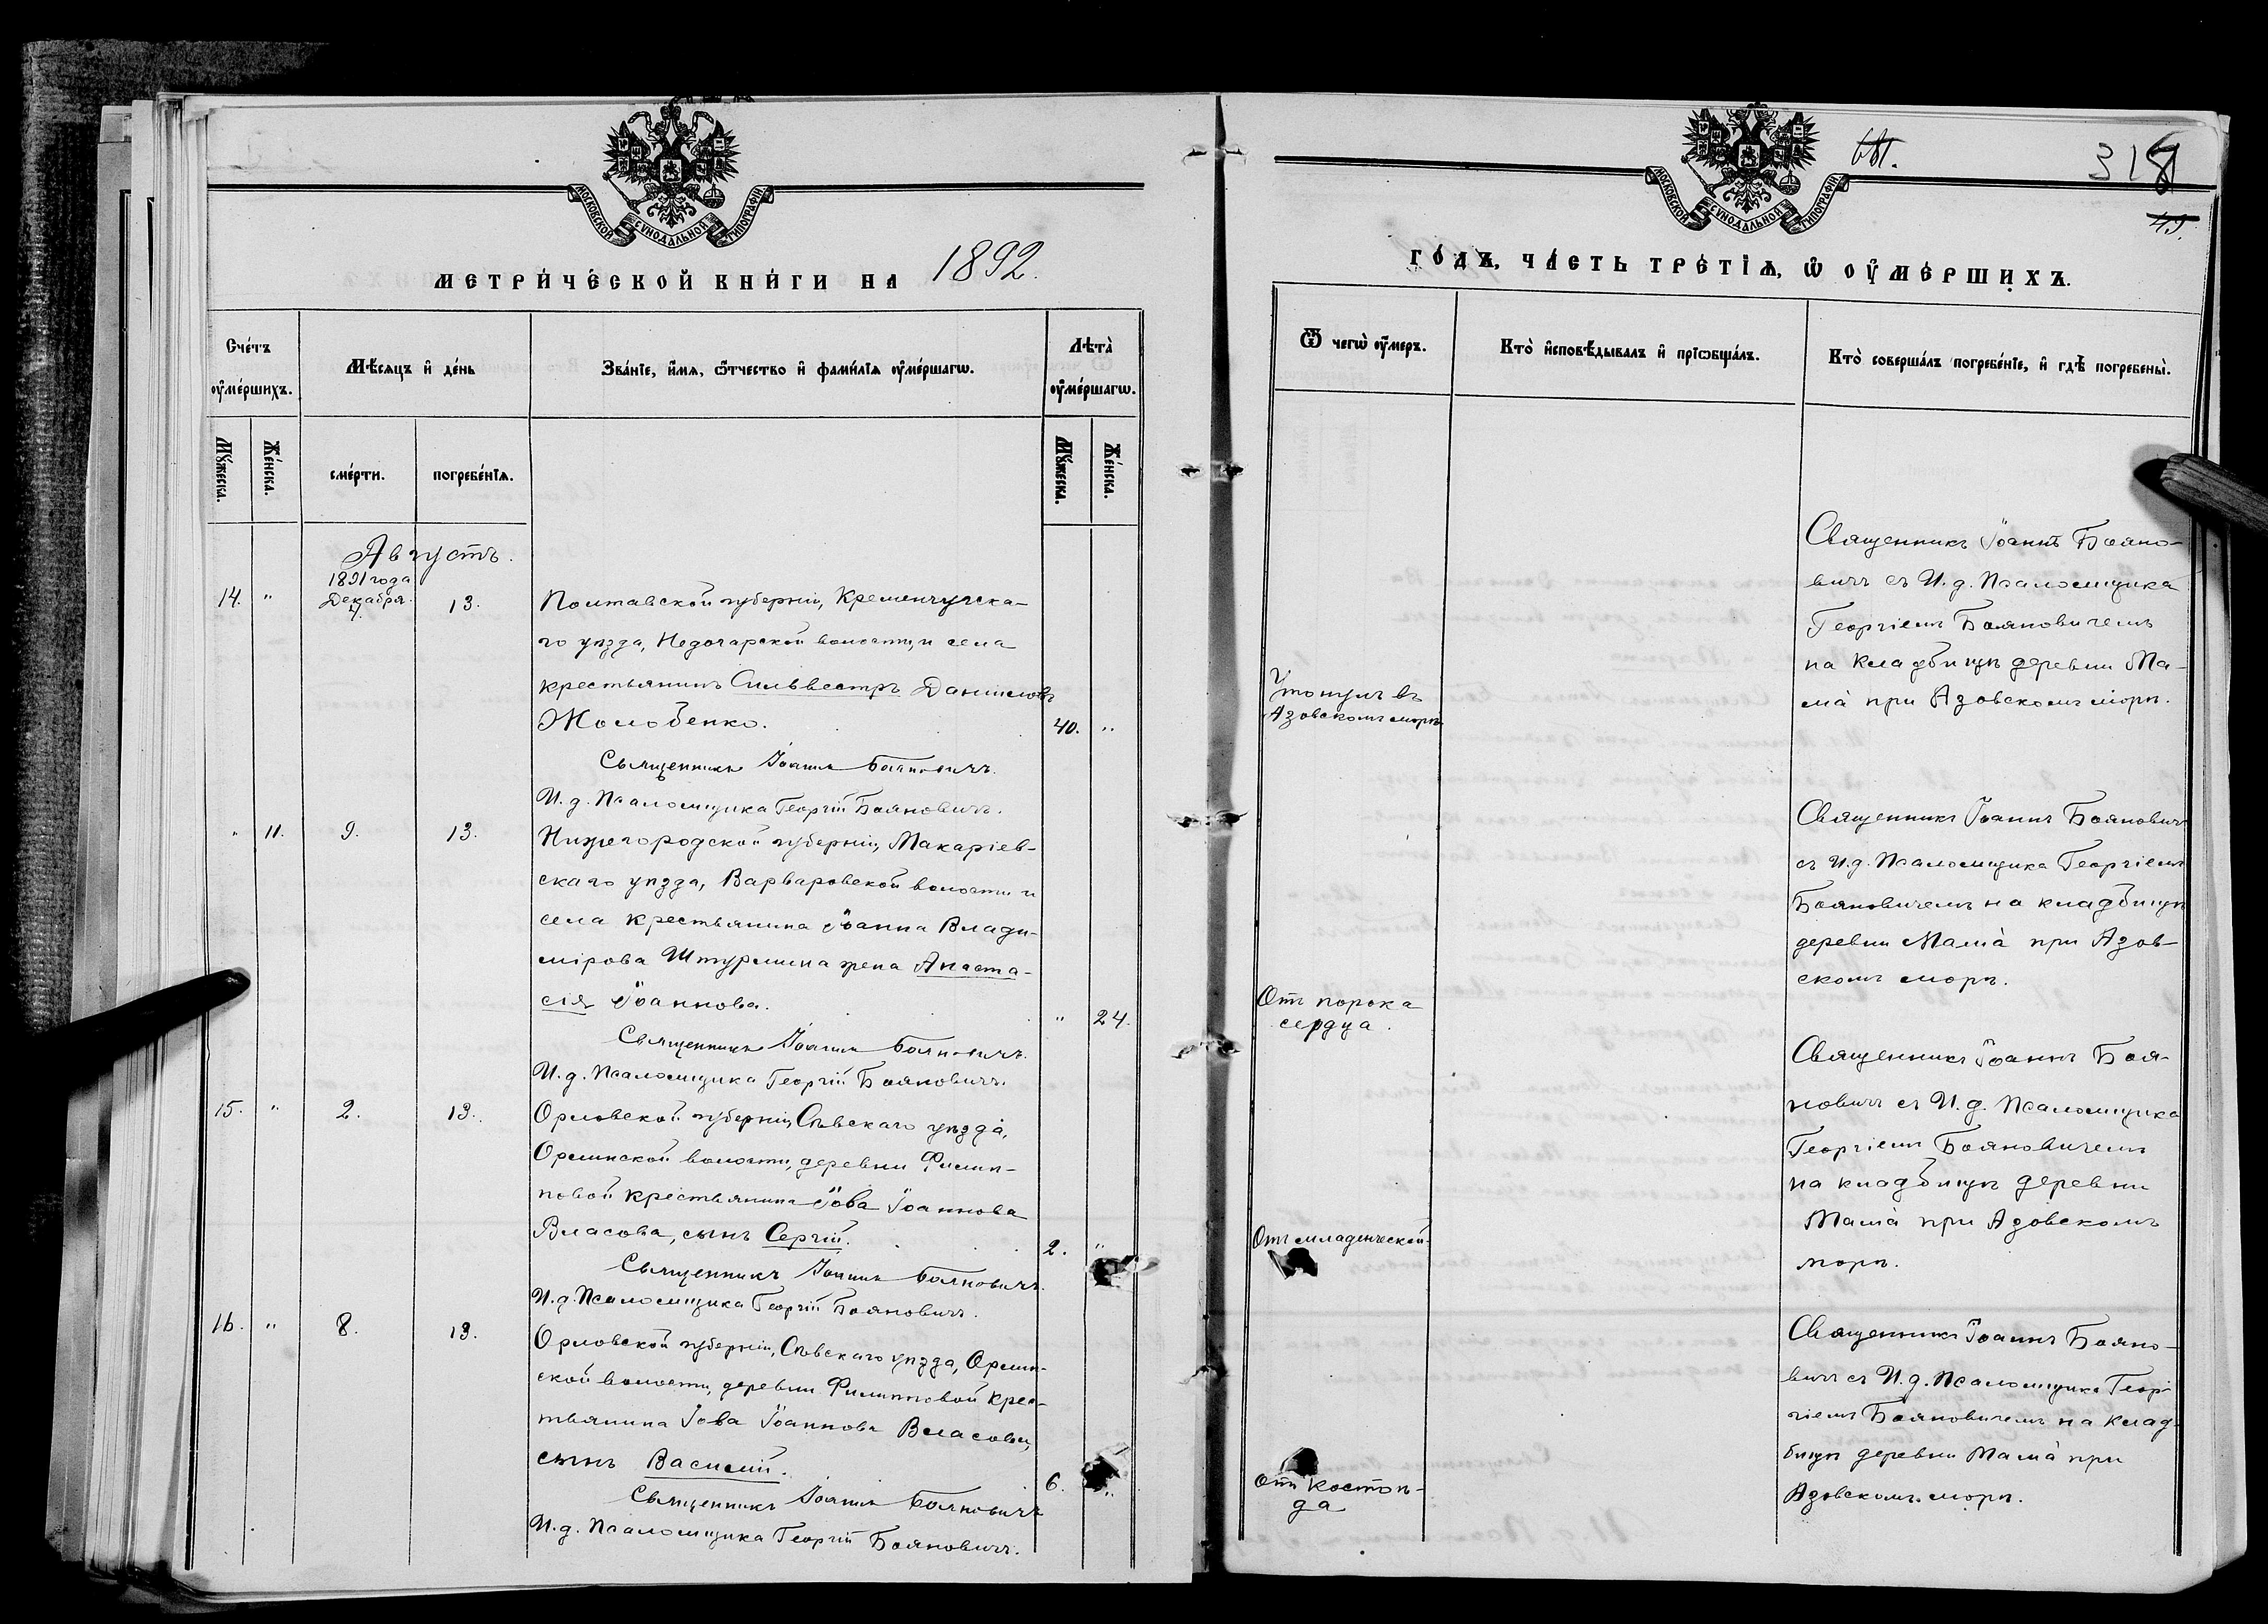 МОСКОВСКОЙ СѴНОДАЛЬНОЙ ТИПОГРАФІИ
МЕТРИ́ЧЕСКОЙ КНИ́ГИ НА 1892.
Сче́тъ ᲂу҆ме́ршихъ.
Мѣ́сѧцъ и҆ де́нь
Зва́нїе, и҆́мѧ, ѻ҆́тчество и҆ фами́лїѧ ᲂу҆ме́ршагѡ.
Лѣта̀ ᲂу҆ме́ршагѡ.
Мꙋ́жеска.
Же́нска.
сме́рти.
погребе́нїѧ.
Мꙋ́жеска.
Же́нска.
Августъ.
1891 года
Декабря
14. " 4. 13. Полтавской губерніи, Кременчугска-
го уѣзда, Недогарской волости, и села
крестьянинъ Сильвестръ Даниловъ
Жолобенко. 40. "
Священникъ Іоаннъ Бояновичъ.
И. д. Псаломщика Георгій Бояновичъ.
" 11. 9. 13. Нижегородской губерніи, Макаріев-
скаго уѣзда, Варваровской волости и
села крестьянина Іоанна Влади-
мірова Штурмина жена Анаста-
сія Іоаннова. " 24.
Священникъ Іоаннъ Бояновичъ.
И. д. Псаломщика Георгій Бояновичъ.
15. " 2. 13. Орловской губерніи, Сѣвскаго уѣзда,
Орлинской волости, деревни Филип-
повой крестьянина Іова Іоаннова
Власова, сынъ Сергій. 2. "
Священникъ Іоаннъ Бояновичъ.
И. д. Псаломщика Георгій Бояновичъ.
16. " 8. 13. Орловской губерніи, Сѣвскаго уѣзда, Орлин-
ской волости, деревни Филипповой крес-
тьянина Іова Іоаннова Власова,
сынъ Василій. 6. "
Священникъ Іоаннъ Бояновичъ
И. д. Псаломщика Георгій Бояновичъ.
МОСКОВСКОЙ СѴНОДАЛЬНОЙ ТИПОГРАФІИ
318
49.
ГО́ДЪ, ЧА́СТЬ ТРЕ́ТІѦ, Ѡ҆ ОУ҆МЕ́РШИХЪ.
Ѿ чегѡ̀ ᲂу҆́меръ.
Кто̀ и҆сповѣ́дывалъ и҆ прїѡбща́лъ.
Кто̀ соверша́лъ погребе́нїе, и҆ гдѣ̀ погребены̀.
Утонулъ въ
Азовскомъ морѣ
Священникъ Іоаннъ Бояно-
вичъ съ И. д. Псаломщика
Георгіемъ Бояновичемъ
на кладбищѣ деревни Ма-
ма̀ при Азовскомъ морѣ.
Отъ порока
сердца.
Священникъ Іоаннъ Бояновичъ
съ И. д. Псаломщика Георгіемъ
Бояновичемъ на кладбищѣ
деревни Мама̀ при Азов-
скомъ морѣ.
Отъ младенческой
Священникъ Іоаннъ Боя-
новичъ съ И. д. Псаломщика
Георгіемъ Бояновичемъ
на кладбищѣ деревни
Мама̀ при Азовскомъ
морѣ.
Отъ костоѣ-
да
Священникъ Іоаннъ Бояно-
вичъ съ И. д. Псаломщика Геор-
гіемъ Бояновичемъ на клад-
бищѣ деревни Мама̀ при
Азовскомъ морѣ.